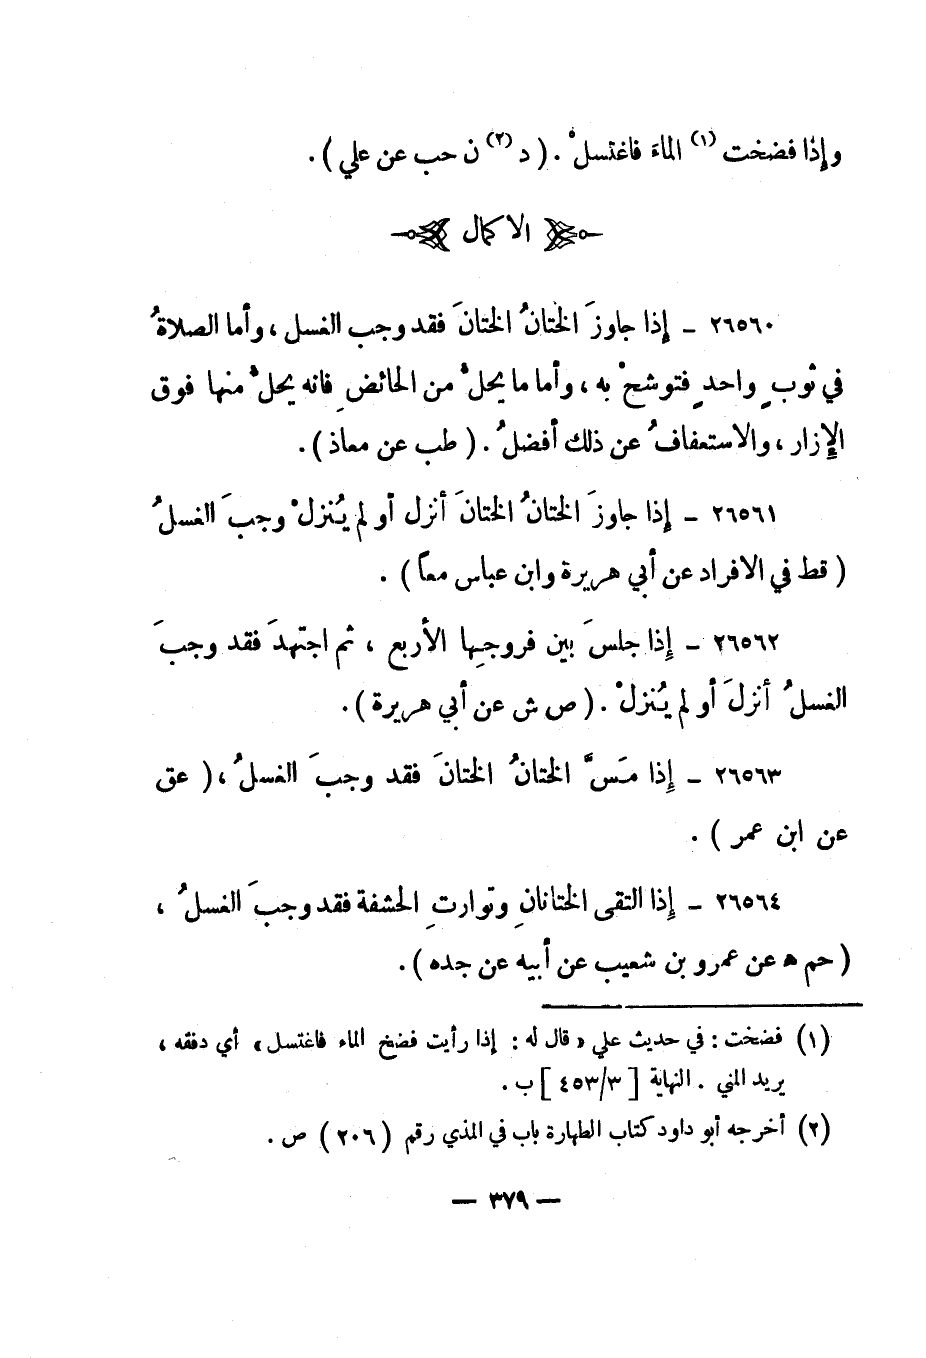 وإذا فضخت (١) الماءَ فاغتسلْ . ( د (٢) ن حب عن علي ) .
الاكمال
٢٦٥٦٠ ـ إذا جاوزَ الختانُ الختانَ فقد وجب الغسل ، وأما الصلاةُ
في ثوبٍ واحدٍ فتوشحْ به ، وأما ما يحلُّ من الحائضِ فانه يحلُّ منها فوق
الإزارِ ، والاستعفافُ عن ذلك أفضلُ . ( طب عن معاذ ) .
٢٦٥٦١ ـ إذا جاوزَ الختانُ الختانَ أنزل أو لم يُنزلْ وجبَ الغسلُ
( قط في الافراد عن أبي هريرة وابن عباس معاً ) .
٢٦٥٦٢ ـ إذا جلسَ بين فروجِها الأربع ، ثم اجتهدَ فقد وجبَ
الغسلُ أنزلَ أو لم يُنزلْ . ( ص ش عن أبي هريرة ) .
٢٦٥٦٣ ـ إذا مَسَّ الختانُ الختانَ فقد وجبَ الغسلُ ، ( عق
عن ابن عمر ) .
٢٦٥٦٤ ـ إذا التقى الختانانِ وتوارتِ الحشفة فقد وجبَ الغسلُ ،
( حم ه عن عمرو بن شعيب عن أبيه عن جده ) .
(١) فضخت : في حديث علي « قال له : إذا رأيت فضخ الماء فاغتسل » أي دفقه ،
يريد المني . النهاية [ ٤٥٣/٣ ] ب .
(٢) أخرجه أبو داود كتاب الطهارة باب في المذي رقم ( ٢٠٦ ) ص .
— ٣٧٩ —